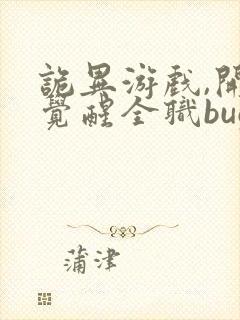 詭異游戏,開
覺醒全職bu
蒲津